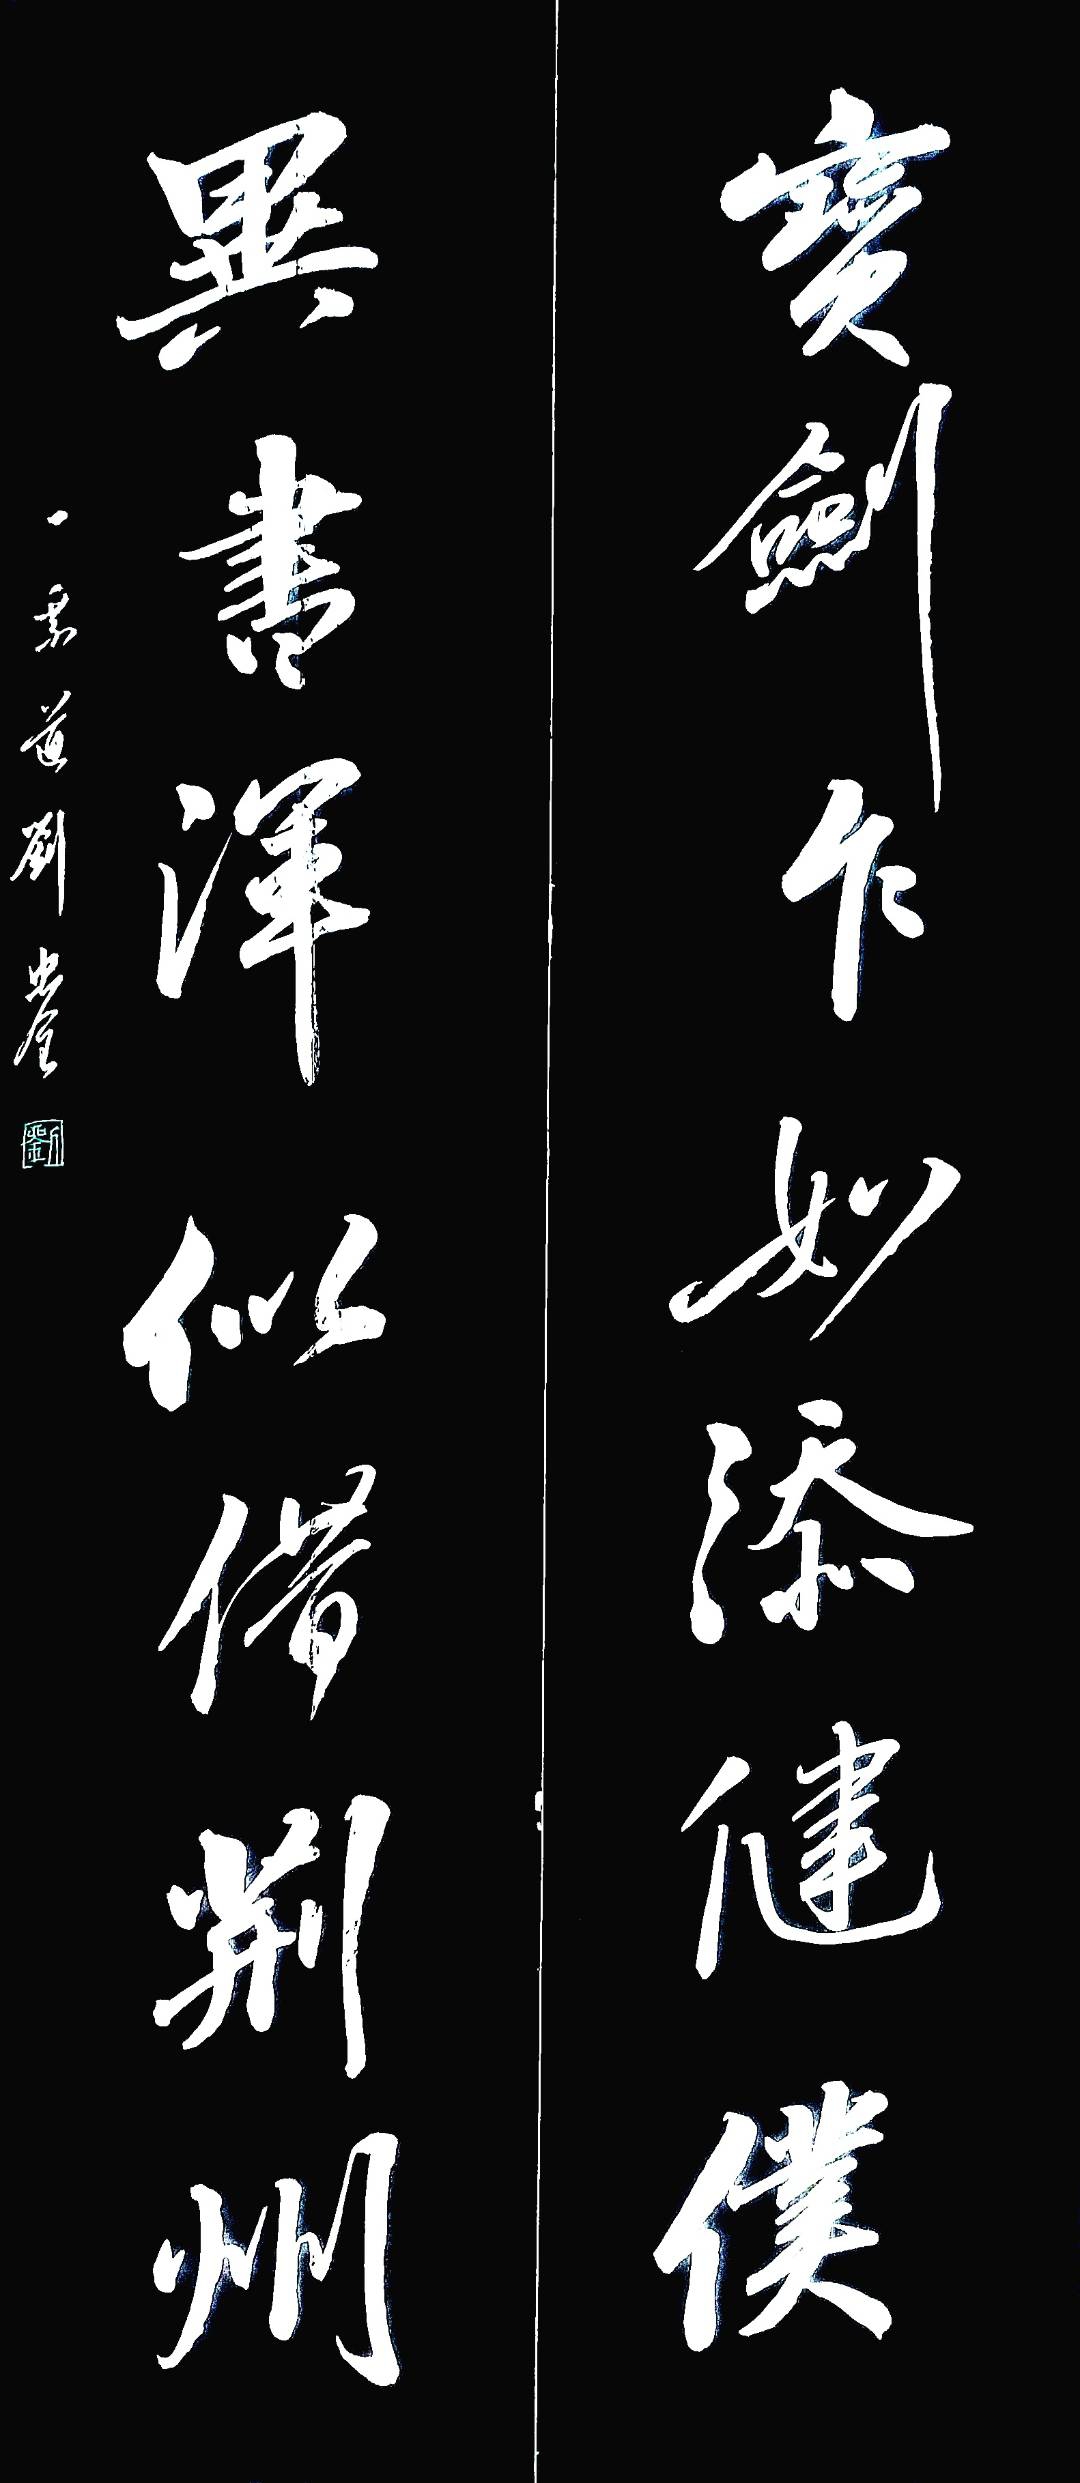 寶劍乍如添健僕
異書渾似借荊州
一乘道劉忠銓
劉